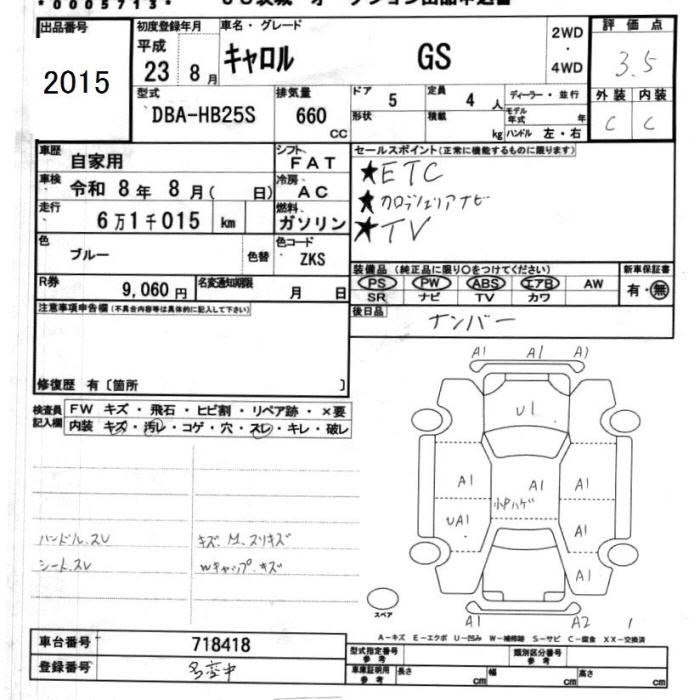 *0005713*
出品番号 初度登録年月 車名・グレード 2WD 評価点
2015 平成 23 8月 キャロル GS ・ 4WD 3.5
型式 排気量 ドア 5 定員 4人 ディーラー・並行 外装 内装
DBA-HB25S 660 CC 形状 積載 kg モデル年式 年 ハンドル 左・右 C C
車歴 自家用 シフト FAT セールスポイント(正常に機能するものに限ります)
車検 令和 8年 8月( 日) 冷房 AC ★ETC
走行 6万1千015 km 燃料 ガソリン ★カロッツェリアナビ
★TV
色 ブルー 色替 色コード ZKS
装備品 (純正品に限り○をつけてください) 新車保証書
R券 9,060円 名変通知期限 月 日 PS PW ABS エアB AW 有・無
SR ナビ TV カワ
注意事項申告欄(不具合内容等は具体的に記入して下さい) 後日品 ナンバー
修復歴 有〔箇所 〕
検査員記入欄 FW キズ・飛石・ヒビ割・リペア跡・×要
内装 キズ・汚レ・コゲ・穴・スレ・キレ・破レ
A1 A1 A1
U1
A1 A1 A1
小Pハゲ
UA1 A1
A1
ハンドル.スレ キズ.M.スリキズ
シート.スレ Wキャップ.キズ
スペア
A1 A2 1
A-キズ E-エクボ U-凹み W-補修跡 S-サビ C-腐食 XX-交換済
車台番号 718418 型式指定番号 参考 類別区分番号 参考
登録番号 車庫証明用 参考 長さ cm 幅 cm 高さ cm